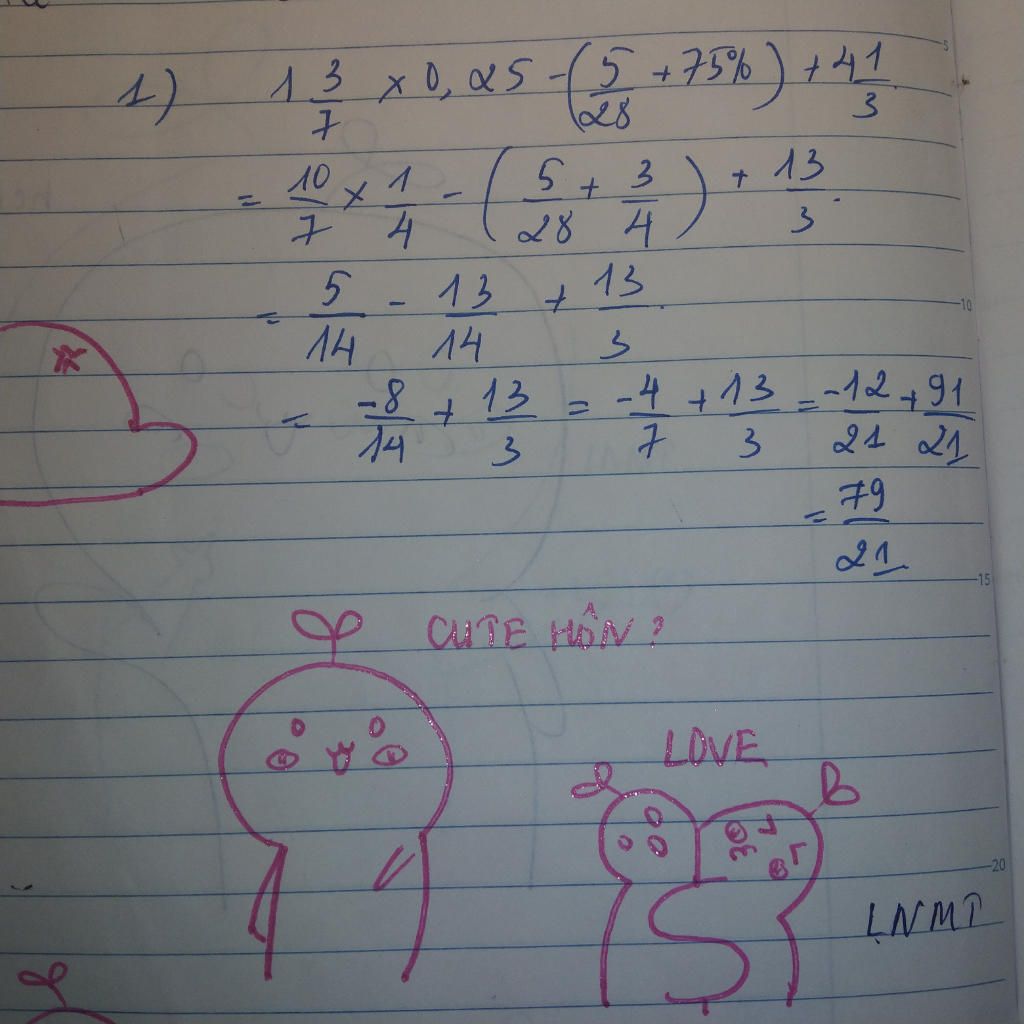 1) 1 3/7 × 0,25 - (5/28 + 75%) + 4 1/3
= 10/7 × 1/4 - (5/28 + 3/4) + 13/3.
= 5/14 - 13/14 + 13/3.
= -8/14 + 13/3 = -4/7 + 13/3 = -12/21 + 91/21
= 79/21
CUTE HÔN?
LOVE
LNMT
5
10
15
20